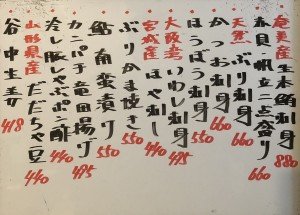 奄美産生本鮪刺身 880
赤貝帆立二点盛り
天然ぶり刺身 660
かつお刺身 660
ほうぼう刺身 550
大阪産いわし刺身 495
宮城産ほや刺し 440
ぶりかま焼き 550
鮎南蛮漬り 550
カンパチ竜田揚げ 495
冷し豚しゃぶポン酢 440
山形県産だだちゃ豆 440
谷中生姜 418